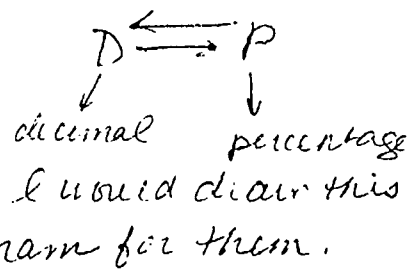 D P
decimal percentage
I would draw this
ram for them.